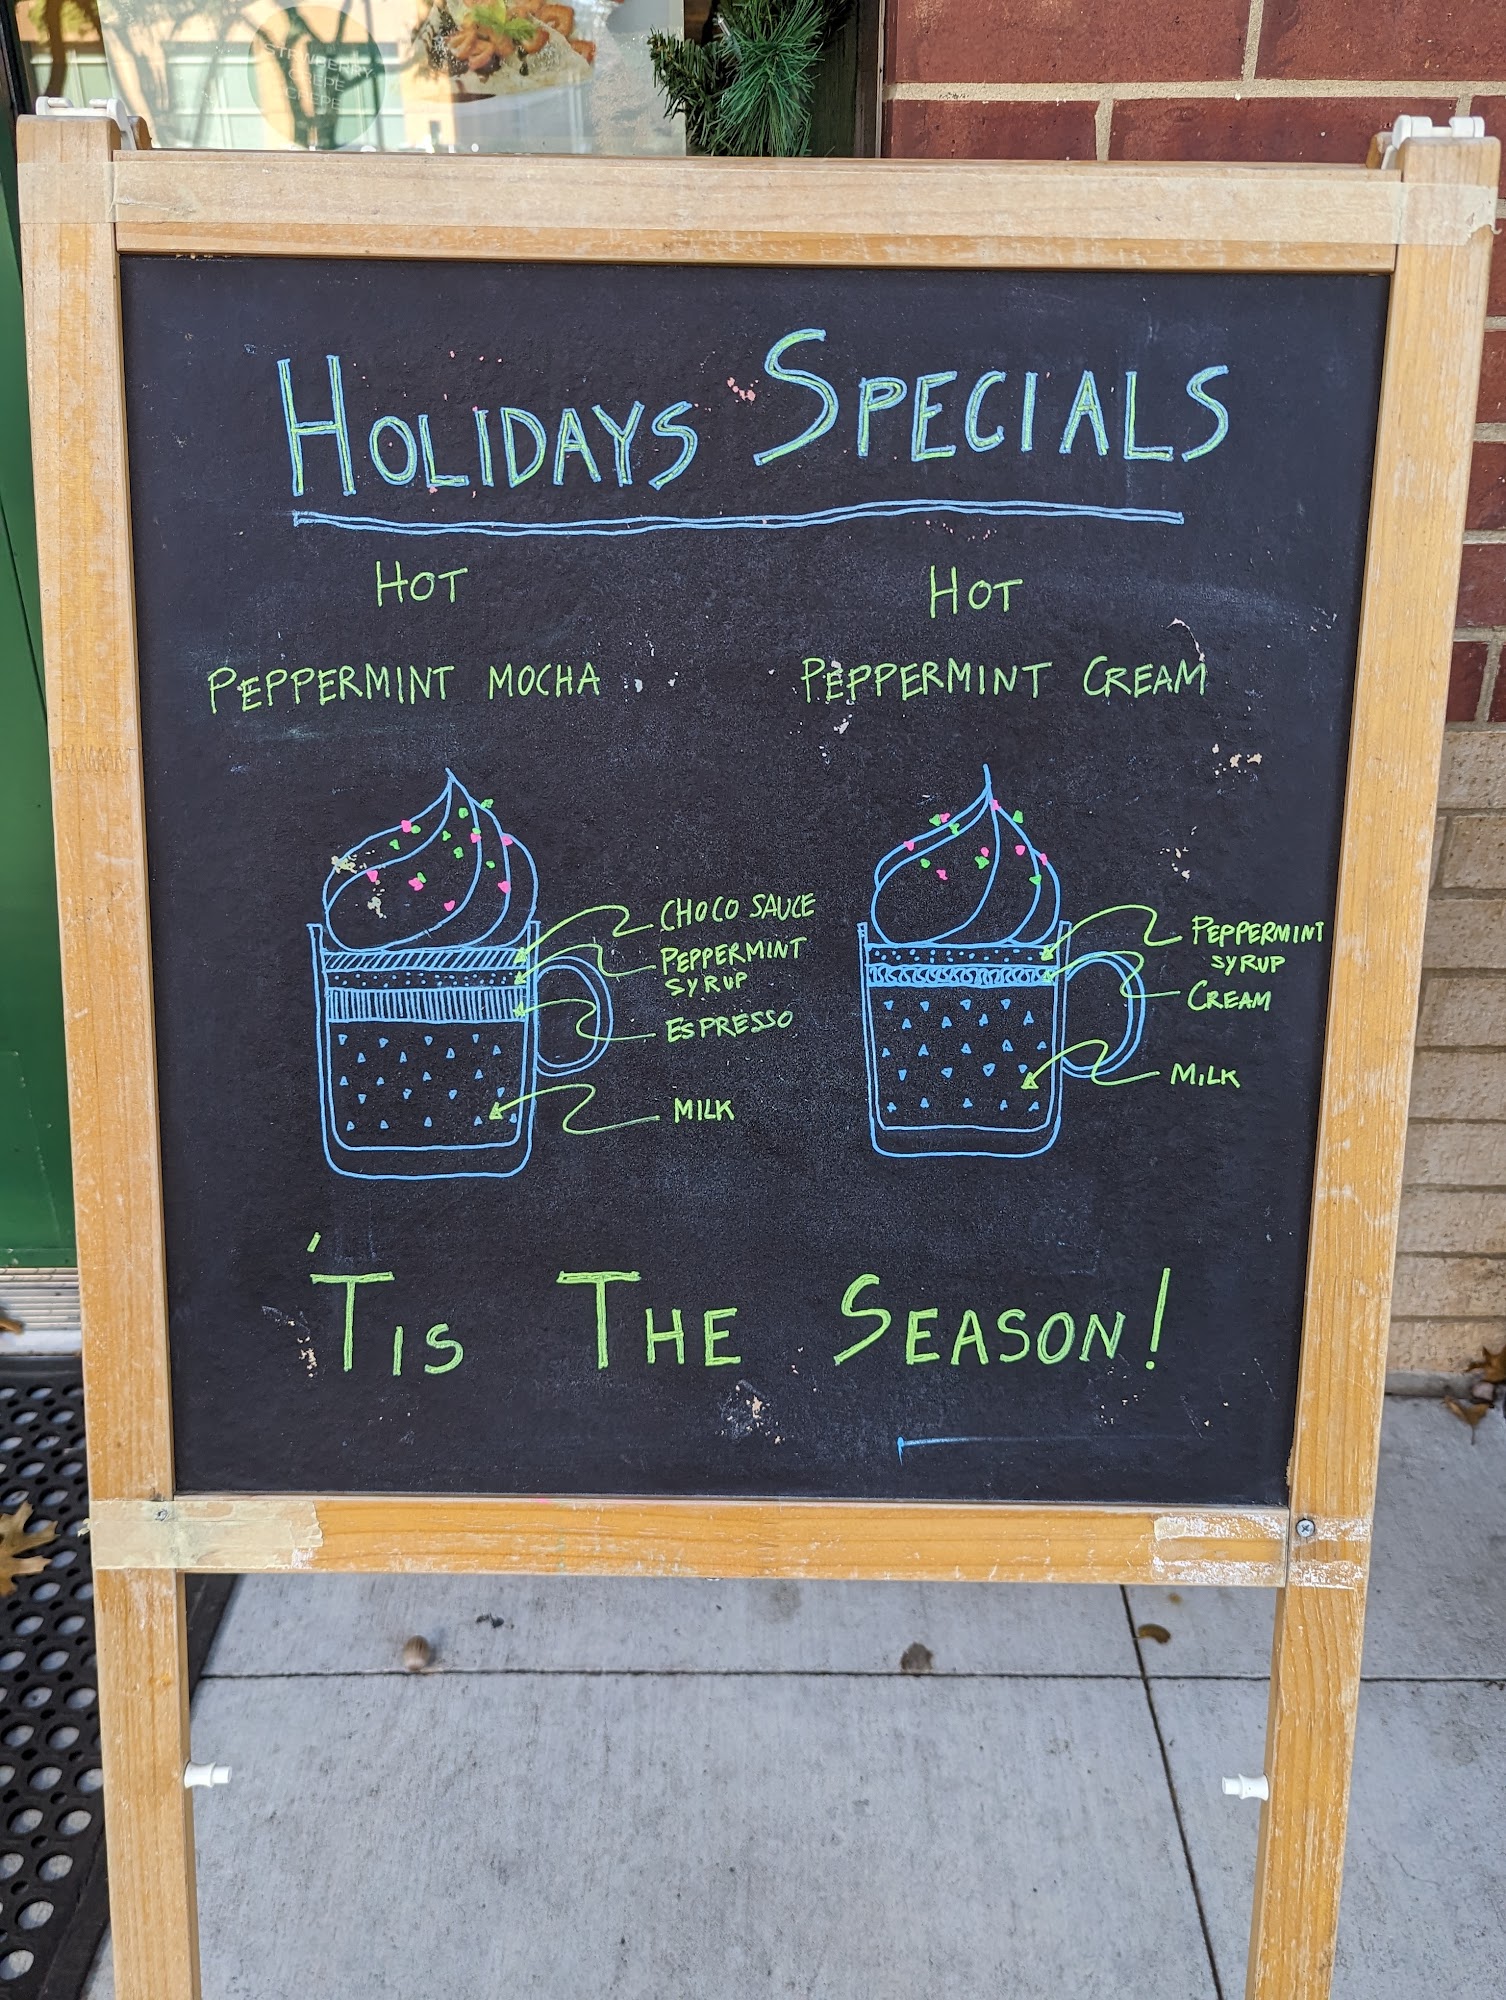 STRAWBERRY
CREPE
CREPE
HOLIDAYS SPECIALS
HOT
PEPPERMINT MOCHA
CHOCO SAUCE
PEPPERMINT
SYRUP
ESPRESSO
MILK
HOT
PEPPERMINT CREAM
PEPPERMINT
SYRUP
CREAM
MILK
'TIS THE SEASON!